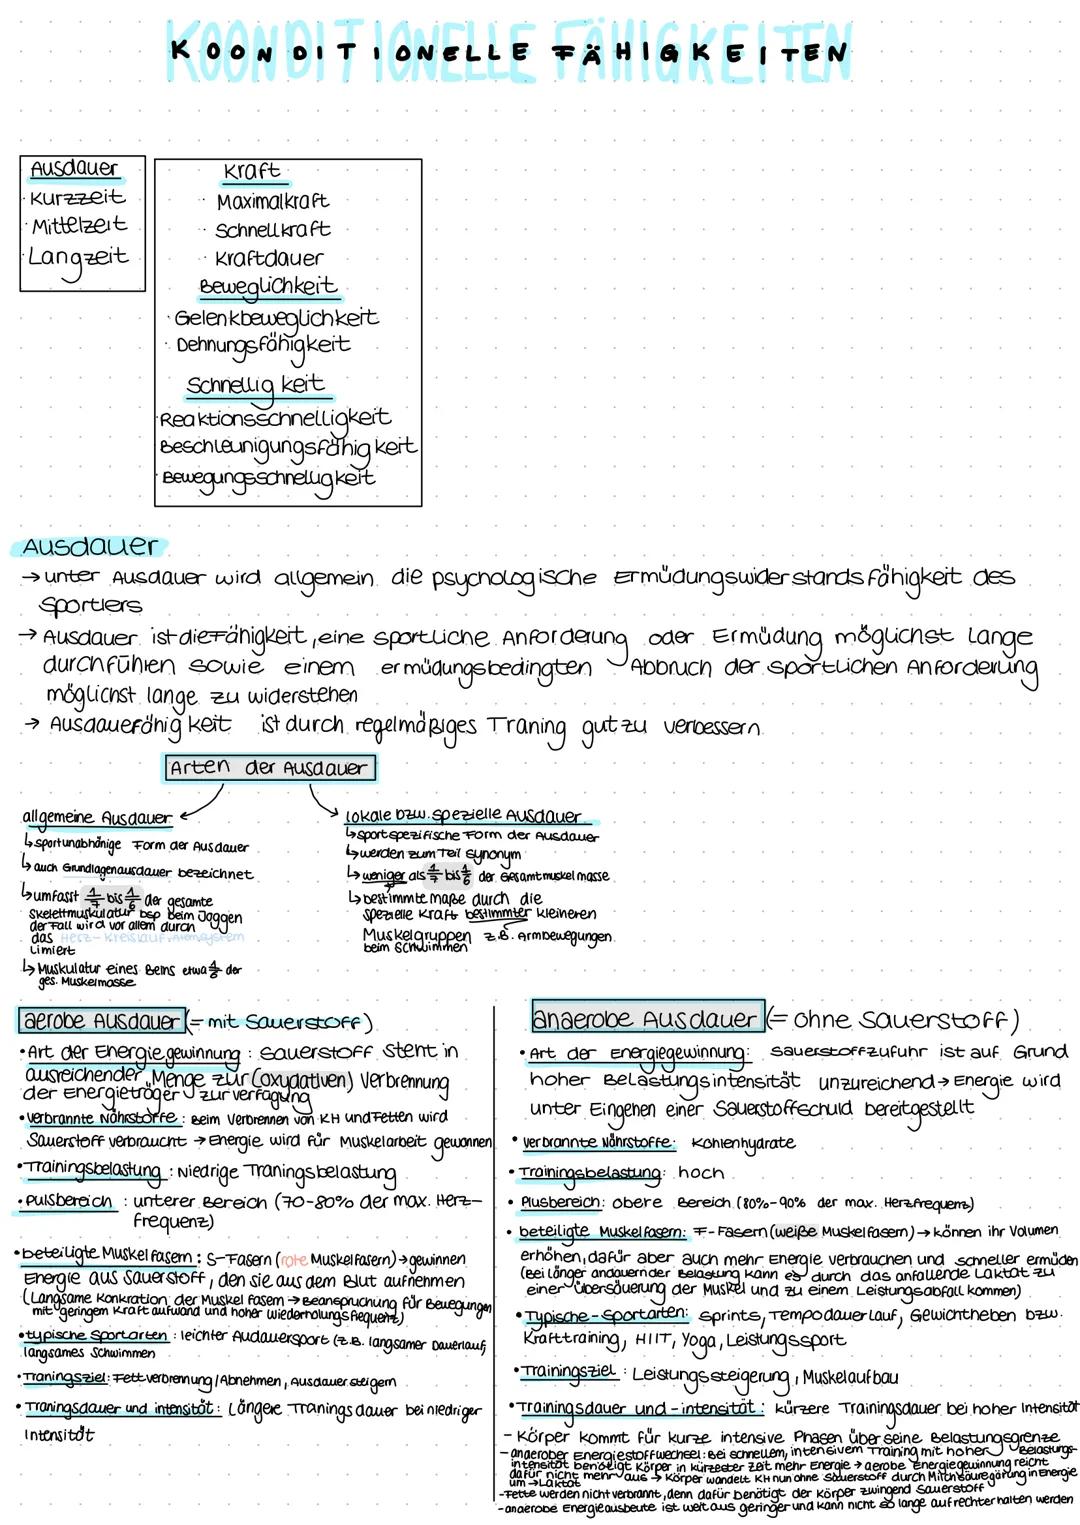 KOONDITIONELLE FÄHIGKEITEN
Ausdauer
· Kurzzeit
· Mittelzeit
· Langzeit
Kraft
· Maximalkraft
· Schnellkraft
· Kraftdauer
Beweglichkeit
· Gelenkbeweglichkeit
· Dehnungsfähigkeit
Schnellig keit
Reaktionsschnelligkeit
Beschleunigungsfähig keit
Bewegungsschnelligkeit
Ausdauer
→ unter Ausdauer wird allgemein die psychologische Ermüdungswiderstandsfähigkeit des
Sportlers
→ Ausdauer ist die Fähigkeit, eine sportliche Anforderung oder Ermüdung möglichst lange
durchführen sowie einem ermüdungsbedingten Abbruch der sportlichen Anforderung
möglichst lange zu widerstehen
→ Ausdauerfähig keit ist durch regelmäßiges Traning gut zu verbessern
Arten der Ausdauer
allgemeine Ausdauer
↳ sportunabhänige Form der Ausdauer
↳ auch Grundlagenausdauer bezeichnet
↳ umfasst 1/7 bis 1/6 der gesamte
Skelettmuskulatur bsp beim Joggen
der Fall wird vor allem durch
das Herz-Kreislauf-Atemsystem
Limiert
↳ Muskulatur eines Beins etwa 1/6 der
ges. Muskelmasse
lokale bzw. spezielle Ausdauer
↳ sportspezifische Form der Ausdauer
↳ werden zum Teil synonym
↳ weniger als 1/7 bis 1/6 der Gesamtmuskelmasse
↳ bestimmte maße durch die
spezielle Kraft bestimmter kleineren
Muskelgruppen z.B. Armbewegungen
beim Schwimmen
aerobe Ausdauer (= mit Sauerstoff)
• Art der Energiegewinnung : Sauerstoff steht in
ausreichender Menge zur (oxydativen) Verbrennung
der Energieträger zur verfügung
• verbrannte Nährstoffe : Beim Verbrennen von KH und Fetten wird
Sauerstoff verbraucht → Energie wird für Muskelarbeit gewonnen
• Trainingsbelastung : Niedrige Traningsbelastung
• pulsbereich : unterer Bereich (70-80% der max. Herz-
frequenz)
• beteiligte Muskelfasern : S-Fasern (rote Muskelfasern) → gewinnen
Energie aus Sauerstoff, den sie aus dem Blut aufnehmen
(Langsame Konkration der Muskel fasern → Beanspruchung für Bewegungen
mit geringem Kraftaufwand und hoher wiederholungsfrequenz)
• typische Sportarten : leichter Audauersport (z.B. langsamer Dauerlauf,
langsames Schwimmen
• Traningsziel: Fettverbrennung/Abnehmen, Ausdauer steigern
• Traningsdauer und intensität : Längere Tranings dauer bei niedriger
Intensität
anaerobe Ausdauer (= ohne Sauerstoff)
• Art der Energiegewinnung: Sauerstoffzufuhr ist auf Grund
hoher Belastungsintensität unzureichend → Energie wird
unter Eingehen einer Sauerstoffschuld bereitgestellt
• verbrannte Nährstoffe: Kohlenhydrate
• Trainingsbelastung: hoch
• Plusbereich: obere Bereich (80%-90% der max. Herzfrequenz)
• beteiligte Muskelfasern: F-Fasern (weiße Muskelfasern) → können ihr Volumen
erhöhen, dafür aber auch mehr Energie verbrauchen und schneller ermüden
(Bei länger andauernder Belastung kann es durch das anfallende Laktat zu
einer Übersäuerung der Muskel und zu einem Leistungsabfall kommen)
• Typische-Sportarten: Sprints, Tempodauerlauf, Gewichtheben bzw.
Krafttraining, HIIT, Yoga, Leistungssport
• Trainingsziel : Leistungssteigerung, Muskelaufbau
• Trainingsdauer und -intensität : kürzere Trainingsdauer bei hoher Intensität
- Körper kommt für kurze intensive Phasen über seine Belastungsgrenze
- anaerober Energiestoffwechsel: Bei schnellem, intensivem Training mit hoher Belastungs-
intensität benötigt Körper in kürzester Zeit mehr Energie → aerobe Energiegewinnung reicht
dafür nicht mehr aus → Körper wandelt KH nun ohne Sauerstoff durch Milchsäuregärung in Energie
um → Laktat
- Fette werden nicht verbrannt, denn dafür benötigt der Körper zwingend Sauerstoff
- anaerobe Energieausbeute ist weit aus geringer und kann nicht so lange aufrechterhalten werden